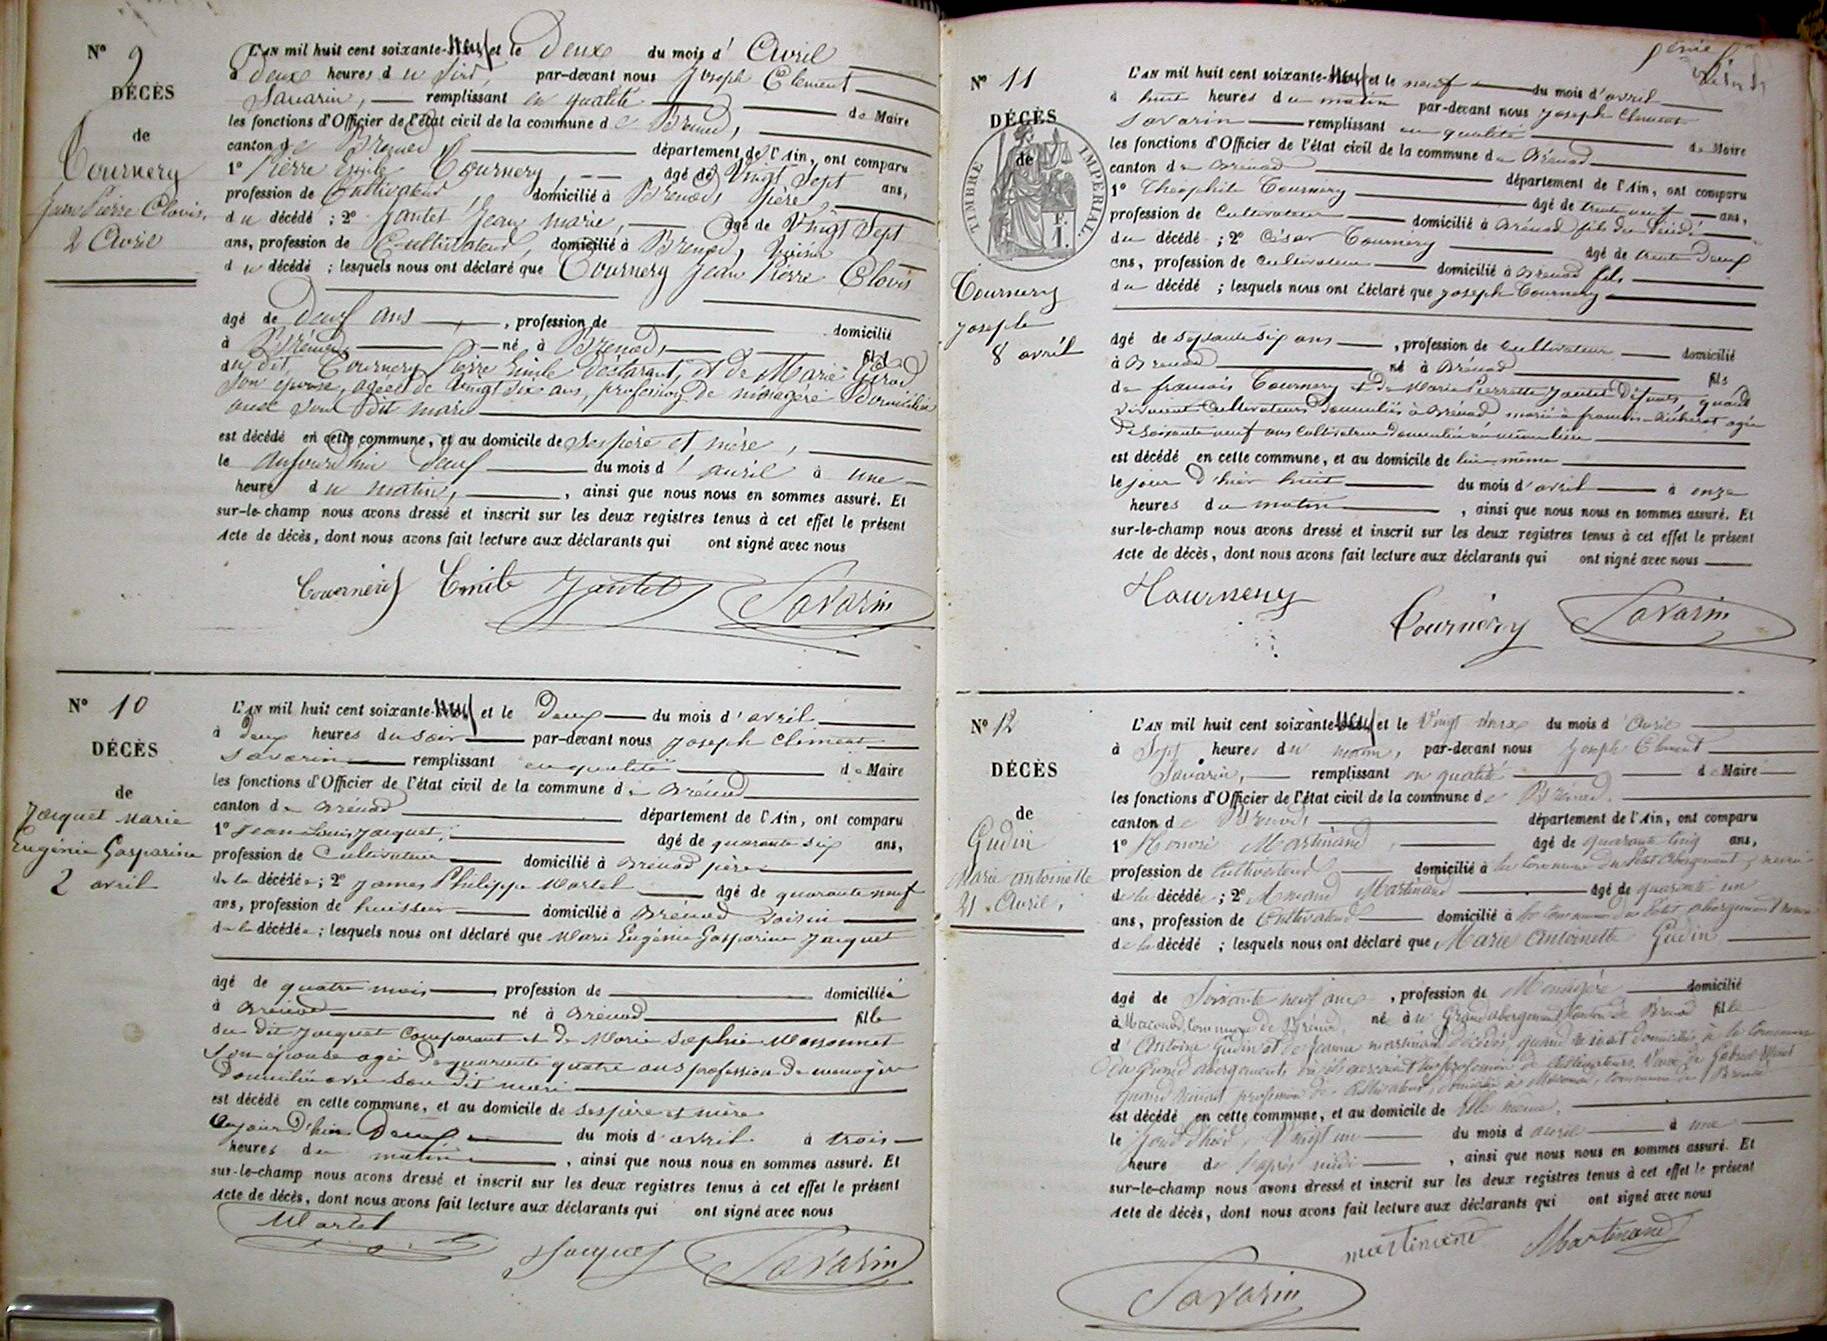 N° 9
DÉCÈS
de
Tournery
Jean Pierre Clovis,
2 Avril
L'AN mil huit cent soixante-neuf et le Deux du mois d' Avril
à deux heures du soir, par-devant nous Joseph Clement
Savarin, remplissant en qualité de Maire
les fonctions d'Officier de l'état civil de la commune de Brenod,
canton de Brenod, département de l'Ain, ont comparu
1° Pierre Emile Tournery, âgé de Vingt Sept ans,
profession de Cultivateur domicilié à Brenod, père,
du décédé ; 2° Jantet Jean marie, âgé de Vingt Sept
ans, profession de Cultivateur, domicilié à Brenod, Voisin
du décédé ; lesquels nous ont déclaré que Tournery Jean Pierre Clovis
âgé de Deux ans, profession de domicilié
à Brénod né à Brenod, fils
du dit, Tournery Pierre Emile déclarant, et de Marie Girod
son epouse, agée de vingt six ans, profession de ménagère Domiciliée
avec son dit mari
est décédé en cette commune, et au domicile de ses père et mère,
le aujourdhui deux du mois d' avril à une
heure du matin, , ainsi que nous nous en sommes assuré. Et
sur-le-champ nous avons dressé et inscrit sur les deux registres tenus à cet effet le présent
Acte de décès, dont nous avons fait lecture aux déclarants qui ont signé avec nous
Tournery Emile Jantet Savarin
N° 10
DÉCÈS
de
Jacquet Marie
Eugénie Gasparine
2 avril
L'AN mil huit cent soixante-neuf et le Deux du mois d' avril
à Deux heures du soir par-devant nous Joseph Clément
Savarin remplissant en qualité de Maire
les fonctions d'Officier de l'état civil de la commune de Brénod
canton de Brénod département de l'Ain, ont comparu
1° Jean Louis Jacquet, âgé de quarante six ans,
profession de Cultivateur domicilié à Brénod père
de la décédée ; 2° James Philippe Martel âgé de quarante neuf
ans, profession de huissier domicilié à Brénod voisin
de la décédée ; lesquels nous ont déclaré que Marie Eugénie Gasparine Jacquet
âgé de quatre mois profession de domiciliée
à Brénod né à Brénod fille
du dit Jacquet Comparant et de Marie Sophie Massonnet
son épouse agée de quarante quatre ans profession de menagère
Domiciliée avec son dit mari
est décédé en cette commune, et au domicile de ses père et mère
Aujourd'hui Deux du mois d avril à trois
heures du matin , ainsi que nous nous en sommes assuré. Et
sur-le-champ nous avons dressé et inscrit sur les deux registres tenus à cet effet le présent
Acte de décès, dont nous avons fait lecture aux déclarants qui ont signé avec nous
Martel
Jacquet Savarin
N° 11
DÉCÈS
de
TIMBRE IMPÉRIAL
Tournery
Joseph
8 avril
L'AN mil huit cent soixante-neuf et le neuf du mois d'avril
à huit heures du matin par-devant nous Joseph Clement
Savarin remplissant en qualité de Maire
les fonctions d'Officier de l'état civil de la commune de Brénod
canton de Brénod département de l'Ain, ont comparu
1° Théophile Tournery âgé de trente neuf ans,
profession de Cultivateur domicilié à Brénod fils du
du décédé ; 2° César Tournery âgé de trente deux
ans, profession de cultivateur domicilié à Brenod fils
du décédé ; lesquels nous ont déclaré que Joseph Tournery
âgé de septante six ans , profession de cultivateur domicilié
à Brenod né à Brénod fils
de françois Tournery et de Marie Pierrette Jantet défunts, quand
vivaient cultivateurs domiciliés à Brénod marié à agée
de soixante neuf ans cultivatrice domiciliée
est décédé en cette commune, et au domicile de lui même
le jour d'hier huit du mois d'avril à onze
heures du matin , ainsi que nous nous en sommes assuré. Et
sur-le-champ nous avons dressé et inscrit sur les deux registres tenus à cet effet le présent
Acte de décès, dont nous avons fait lecture aux déclarants qui ont signé avec nous
Tourneny Tournery Savarin
N° 12
DÉCÈS
de
Gudin
Marie antoinette
21 Avril,
L'AN mil huit cent soixante-neuf et le Vingt deux du mois d'Avril
à Sept heures du matin, par-devant nous Joseph Clement
Savarin, remplissant en qualité de Maire
les fonctions d'Officier de l'état civil de la commune de Brénod,
canton de Brenod, département de l'Ain, ont comparu
1° Honoré Martinand, âgé de quarante cinq ans,
profession de Cultivateur domicilié à la Commune du Petit Abergement, neveu
de la décédé ; 2° Armand Martinand âgé de quarante un
ans, profession de Cultivateur domicilié à la Commune du Petit abergement neveu
de la décédé ; lesquels nous ont déclaré que Marie Antoinette Gudin
âgé de Soixante neuf ans , profession de Ménagère domicilié
à Maconod Commune de Brénod, né à u Grand abergement Canton de Brénod fille
d' Antoine Gudin et de Jeanne martinand décédés, quand vivait domiciliés à la Commune
du Grand abergement, où ils exercaient la profession de Cultivateurs, Veuve de Gabriel
quand vivait profession de Cultivateur, domicilié à Maconod, commune de Brenod
est décédé en cette commune, et au domicile de Elle même,
le Jour d'hier, Vingt un du mois d avril à une
heure de l'après midi , ainsi que nous nous en sommes assuré. Et
sur-le-champ nous avons dressé et inscrit sur les deux registres tenus à cet effet le présent
Acte de décès, dont nous avons fait lecture aux déclarants qui ont signé avec nous
martinand Martinand
Savarin